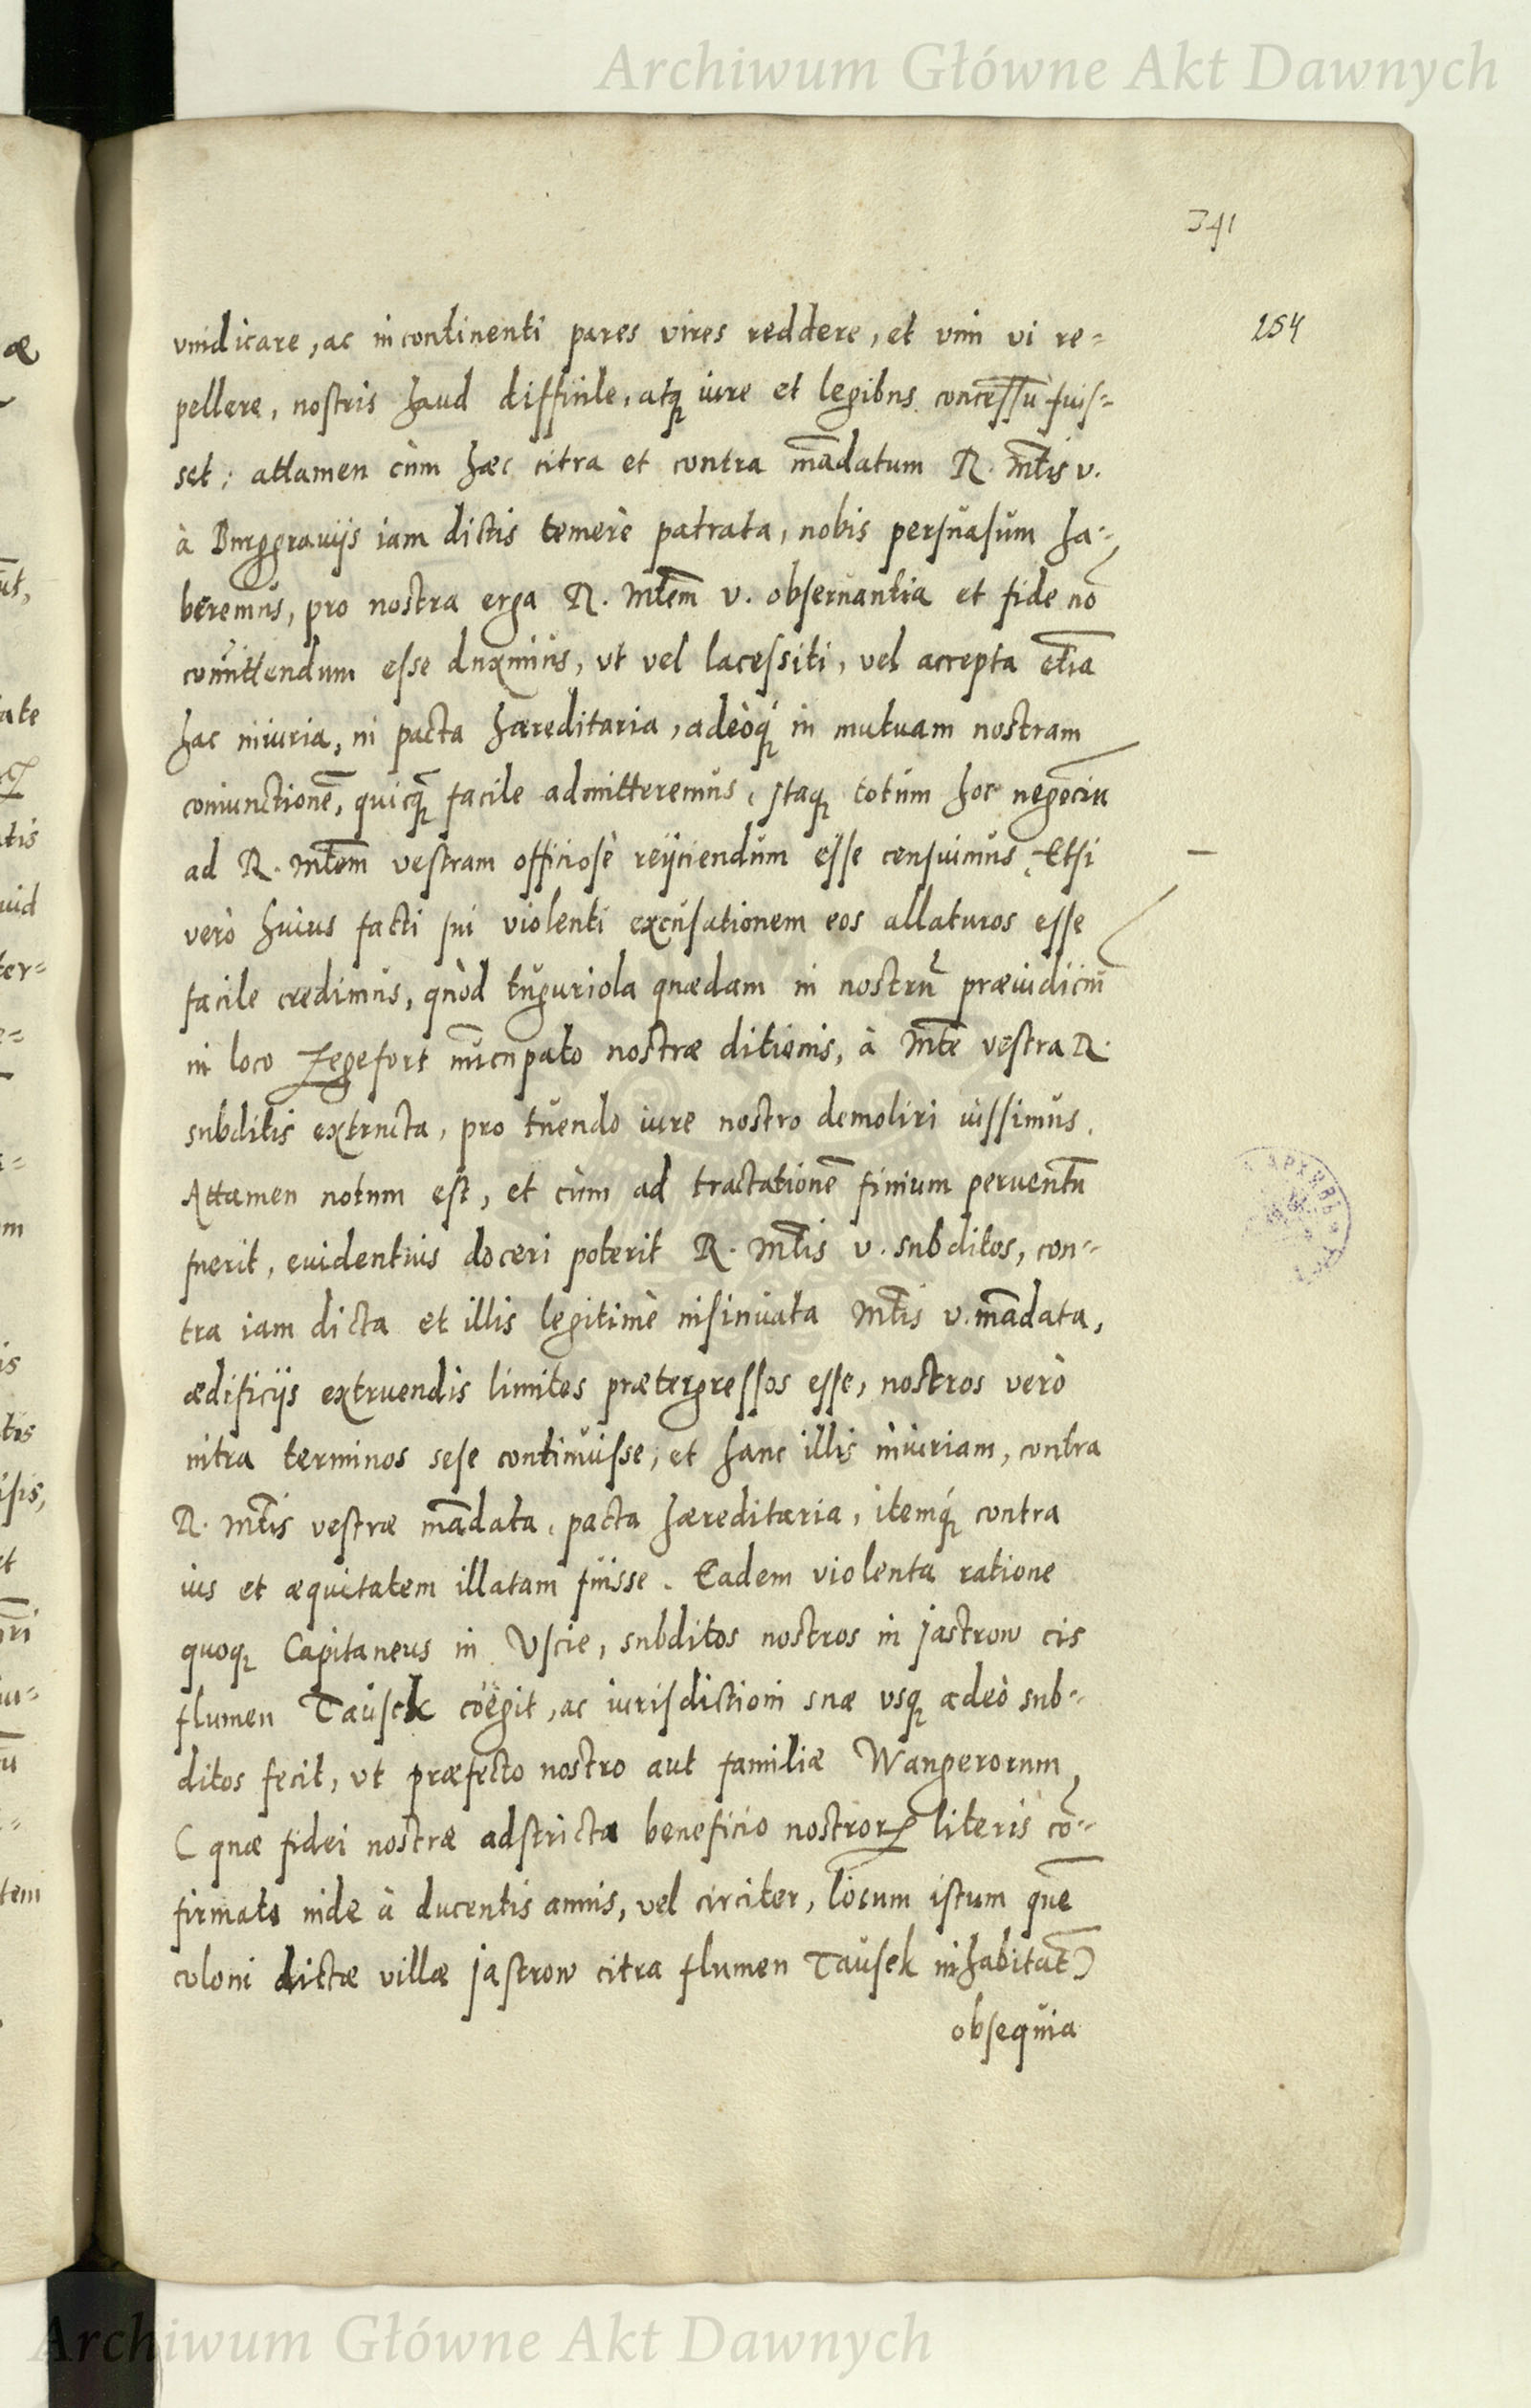 Archiwum Główne Akt Dawnych
341
254
vindicare, ac incontinenti pares vires reddere, et vim vi re=
pellere, nostris haud difficile, atq₃ iure et legibus concessū fuis=
set; attamen cùm hæc citra et contra mādatum R. Mtis v.
à Burggrauijs iam dictis temerè patrata, nobis persuasum ha=
beremus, pro nostra erga R. Mtem v. obseruantia et fide nō
comittendum esse duximus, vt vel lacessiti, vel accepta etiā
hac iniuria, in pacta hæreditaria, adeòq₃ in mutuam nostram
coniunctionē, quicq̄₃ facile admitteremus, Itaq₃ totum hoc negociū
ad R. Mtem vestram officiosè reijciendum esse censuimus. Etsi
verò huius facti sui violenti excusationem eos allaturos esse
facile credimus, quòd tuguriola quædam in nostrū præiudiciū
in loco Zegefort nūcupato nostræ ditionis, à Mte vestra R.
subditis extructa, pro tuendo iure nostro demoliri iussimus.
Attamen notum est, et cùm ad tractationē finium peruentū
fuerit, euidentius doceri poterit R. Mtis v. subditos, con=
tra iam dicta et illis legitimè insinuata Mtis v. mādata,
ædificijs extruendis limites prætergressos esse, nostros verò
intra terminos sese continuisse, et hanc illis iniuriam, contra
R. Mtis vestræ mādata, pacta hæreditaria, itemq́₃ contra
ius et æquitatem illatam fuisse. Eadem violenta ratione
quoq₃ Capitaneus in Uscie, subditos nostros in Jastrow cis
flumen Tausek coëgit, ac iurisdictioni suæ vsq₃ adeò sub=
ditos fecit, vt præfecto nostro aut familiæ Wangerorum,
(quæ fidei nostræ adstricta beneficio nostrorꝝ literis cō=
firmato inde à ducentis annis, vel circiter, locum istum quē
coloni dictæ villæ Jastrow citra flumen Tausek inhabitāt)
obsequia
Archiwum Główne Akt Dawnych